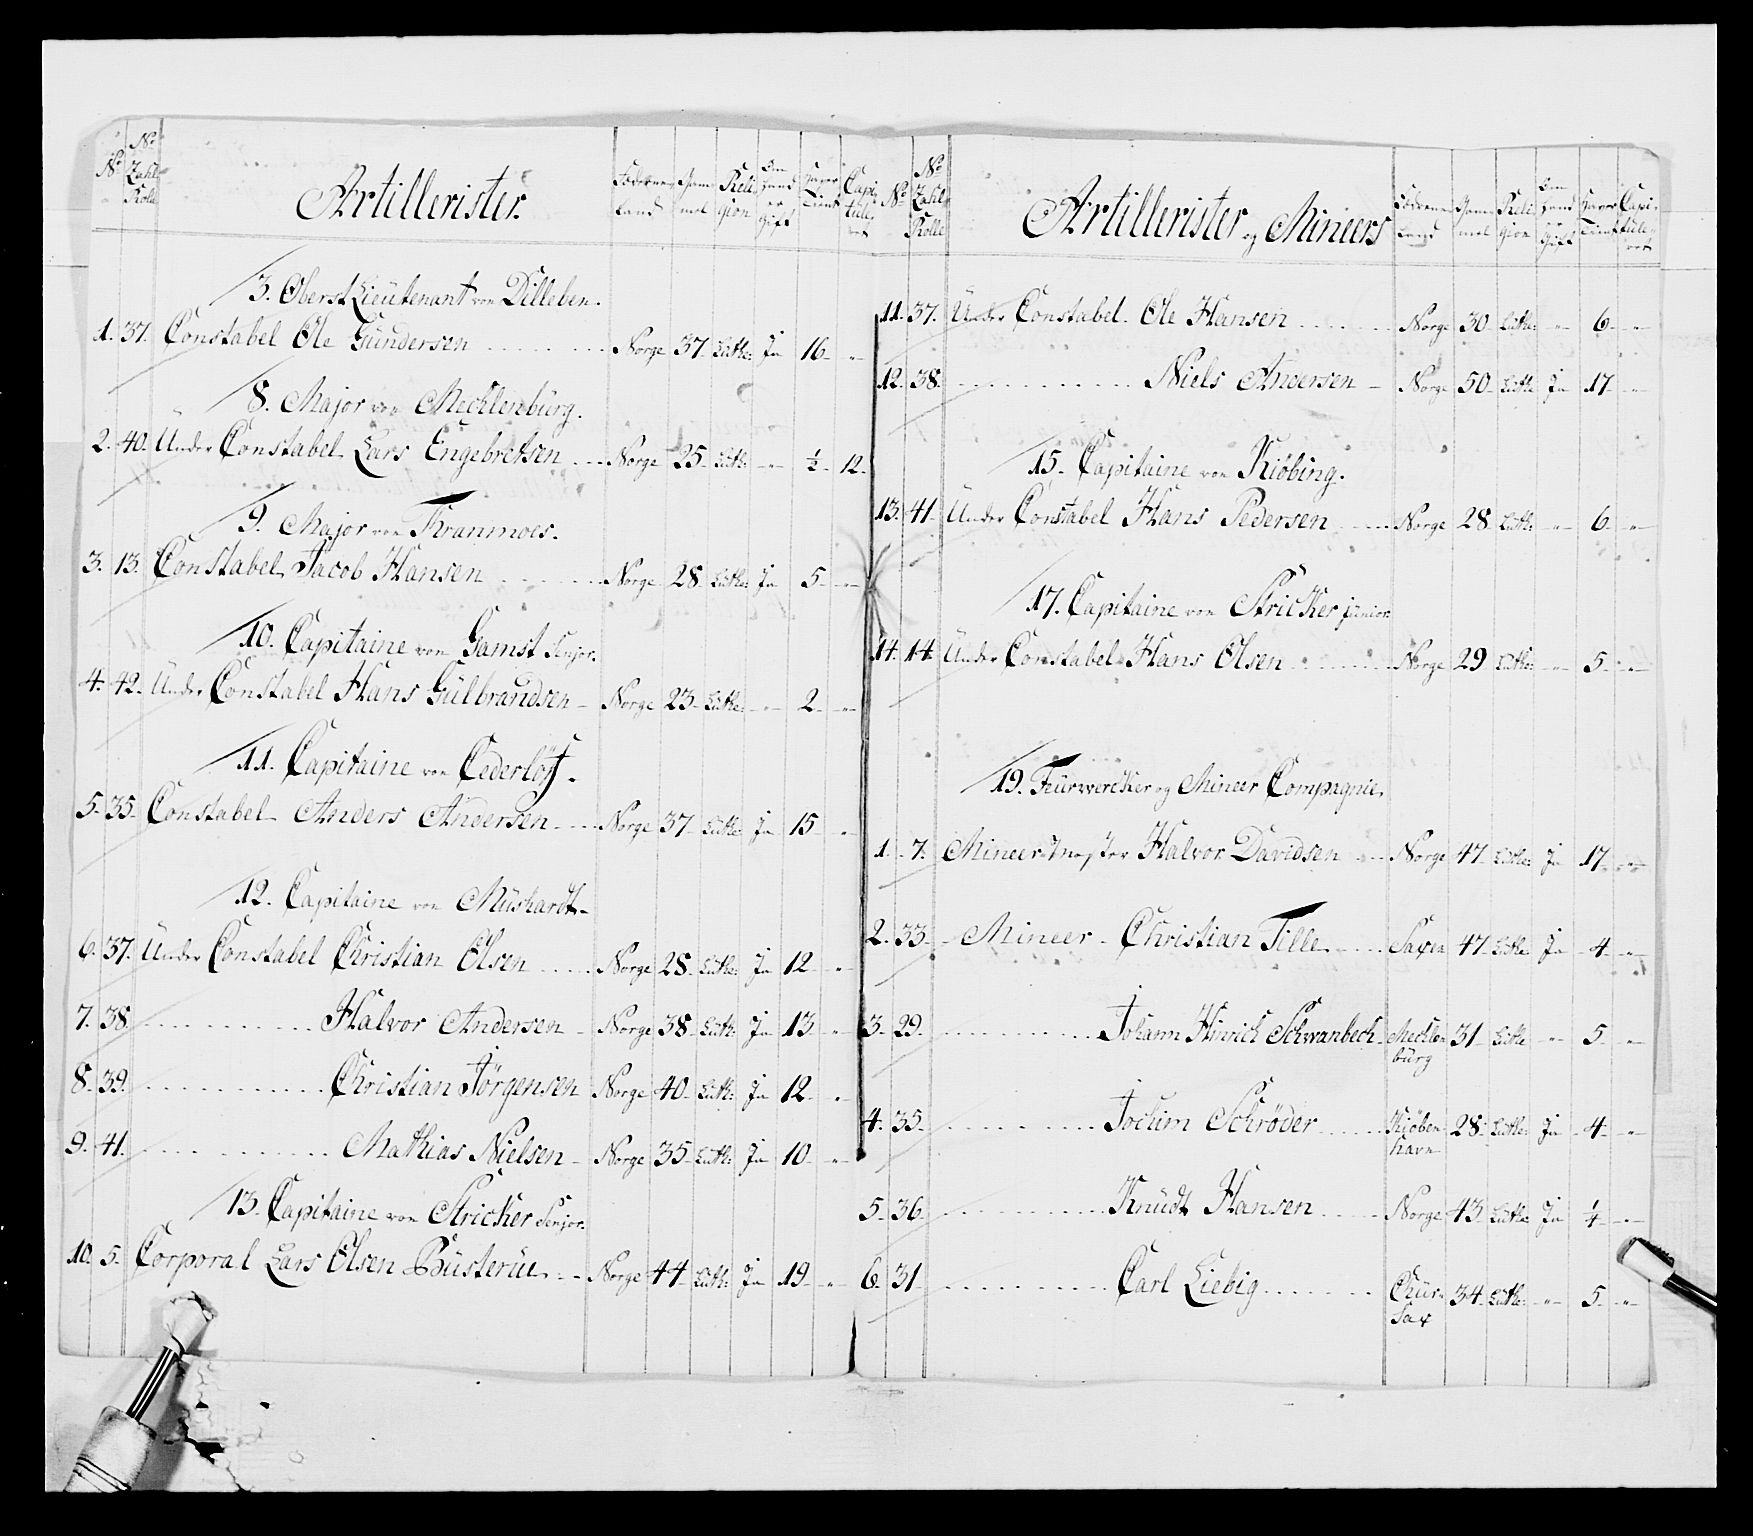 No
No Zahl Rolle
Artillerister.
Födrene Land
Gammel
Religion
Om Hand er Gift
Haver Tient
Capitulert
3. Oberst Lieütenant von Dilleben.
1. 37. Constabel Ole Gündersen Norge 37 Luth: Ja 16 "
8. Major von Mecklenbürg.
2. 40. Under Constabel Lars Engebretsen Norge 25 Luth: " ½ 12
9. Major von Kranmoes.
3. 13. Constabel Jacob Hansen Norge 28 Luth: Ja 5 "
10. Capitaine von Gamst Senjor.
4. 42. Under Constabel Hans Gülbrandsen Norge 23 Luth: " 2 "
11. Capitaine von Cederlöff.
5. 35. Constabel Anders Andersen Norge 37 Luth: Ja 15 "
12. Capitaine von Müshardt
6. 37. Under Constabel Christian Olsen Norge 28 Luth: Ja 12 "
7. 38. Halvor Andersen Norge 38 Luth: Ja 13 "
8. 39. Christian Jörgensen Norge 40 Luth: Ja 12 "
9. 41. Mathias Nielsen Norge 35 Luth: Ja 10 "
13. Capitaine von Stricker Senjor.
10. 5. Corporal Lars Olsen Büsterüe Norge 44 Luth: Ja 19 "
No
No Zahl Rolle
Artillerister og Mineers
Födrene Land
Gammel
Religion
Om Hand er Gift
Haver Tient
Capitulert
11. 37. Under Constabel Ole Hansen Norge 30 Luth: " 6 "
12. 38. Niels Andersen Norge 50 Luth: Ja 17 "
15. Capitaine von Kiöbing.
13. 41. Under Constabel Hans Pedersen Norge 28 Luth: " 6 "
17. Capitaine von Stricker junior.
14. 14. Under Constabel Hans Olsen Norge 29 Luth: " 5 "
19. Feürwercker og Mineer Compagnie.
1. 7. Mineermester Halvor Davidsen Norge 47 Luth: Ja 17 "
2. 33. Mineer Christian Tille Saxen 47 Luth: Ja 4 "
3. 29. Johann Hinrich Schwanbech Mecklenbürg 31 Luth: " 5 "
4. 35. Jochim Schrøder Kiöbenhavn 28 Luth: Ja 4 "
5. 36. Knüdt Hansen Norge 43 Luth: Ja ¼ "
6. 31. Carl Liebig Chür Sax 34 Luth: " 5 "